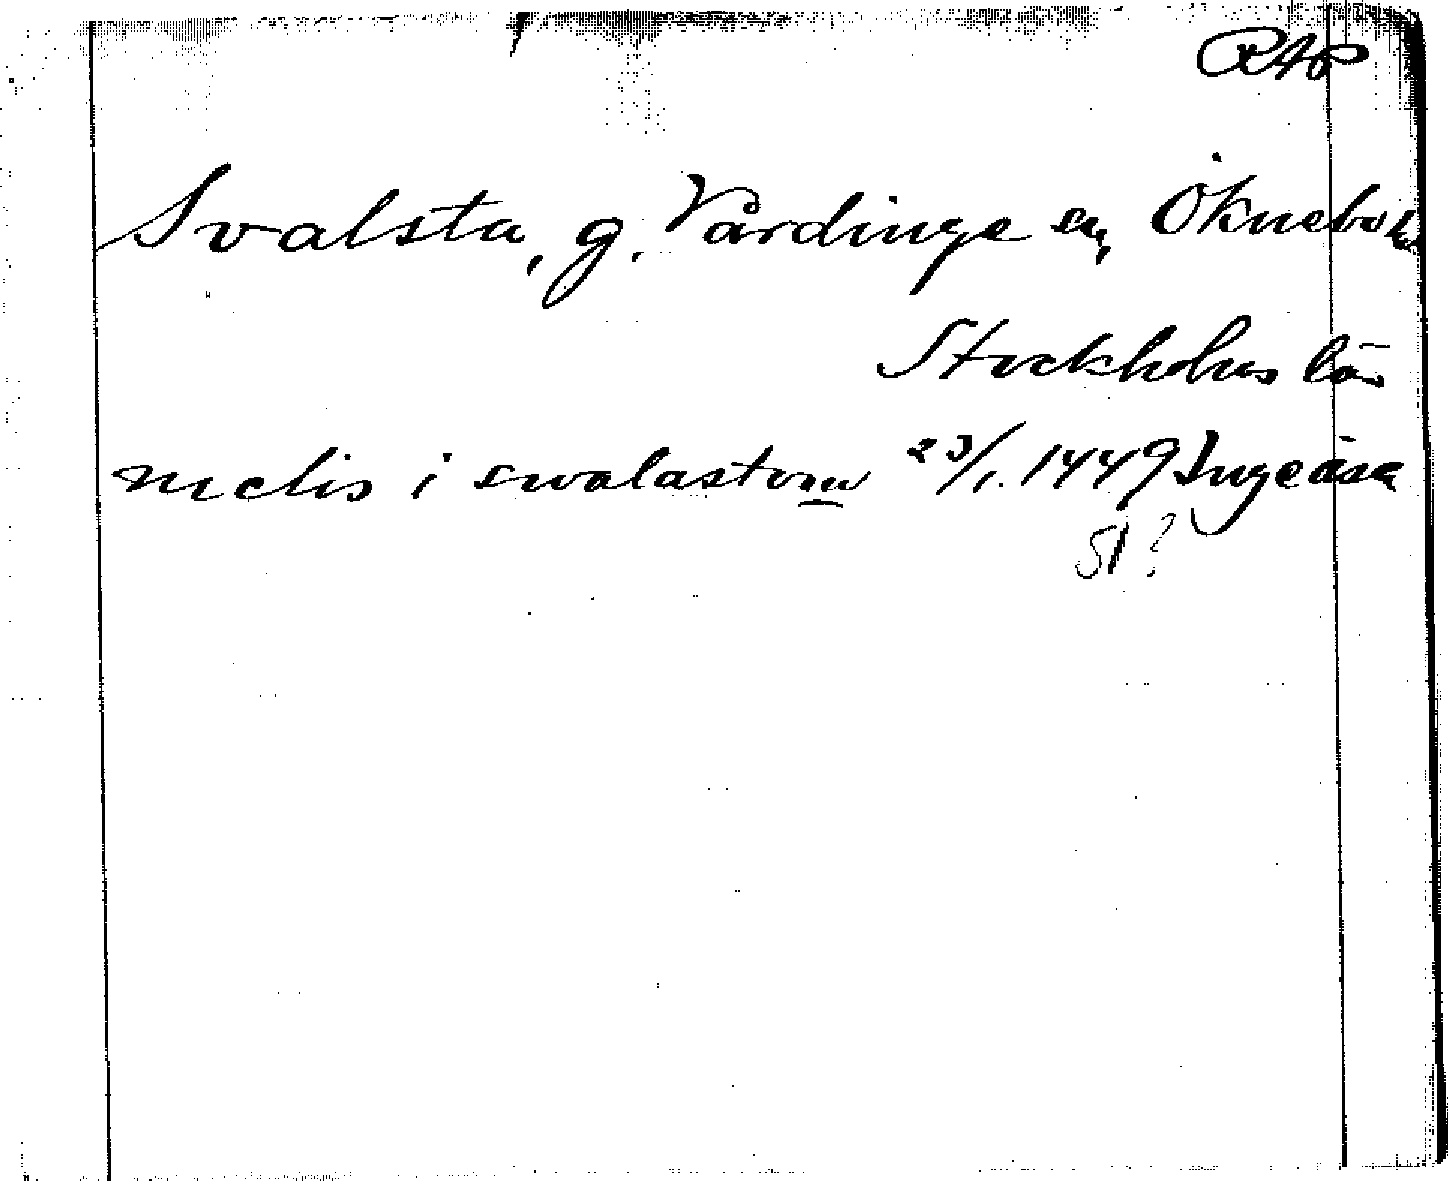 RAP
Svalsta, g. Vårdinge sn, Öknebo hd
Stockholms län
melis i swalastom 23/1. 1449 Ingeåsa
51?